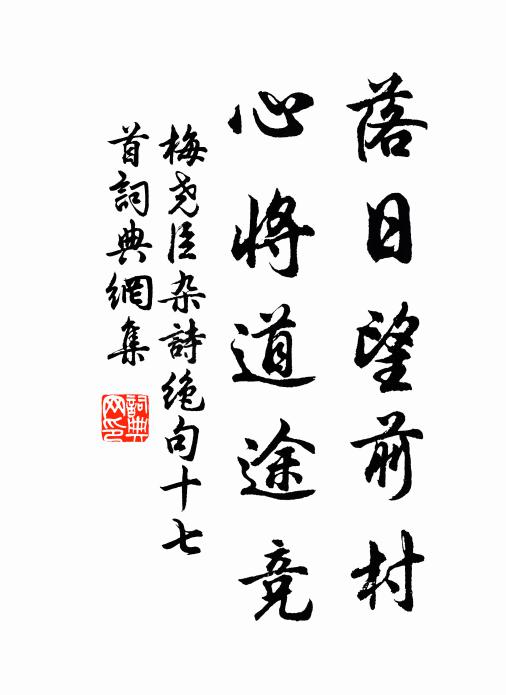 落日望前村
心將道途竞
梅尧臣杂詩絶句十七
首詞典網集
詞典
网印